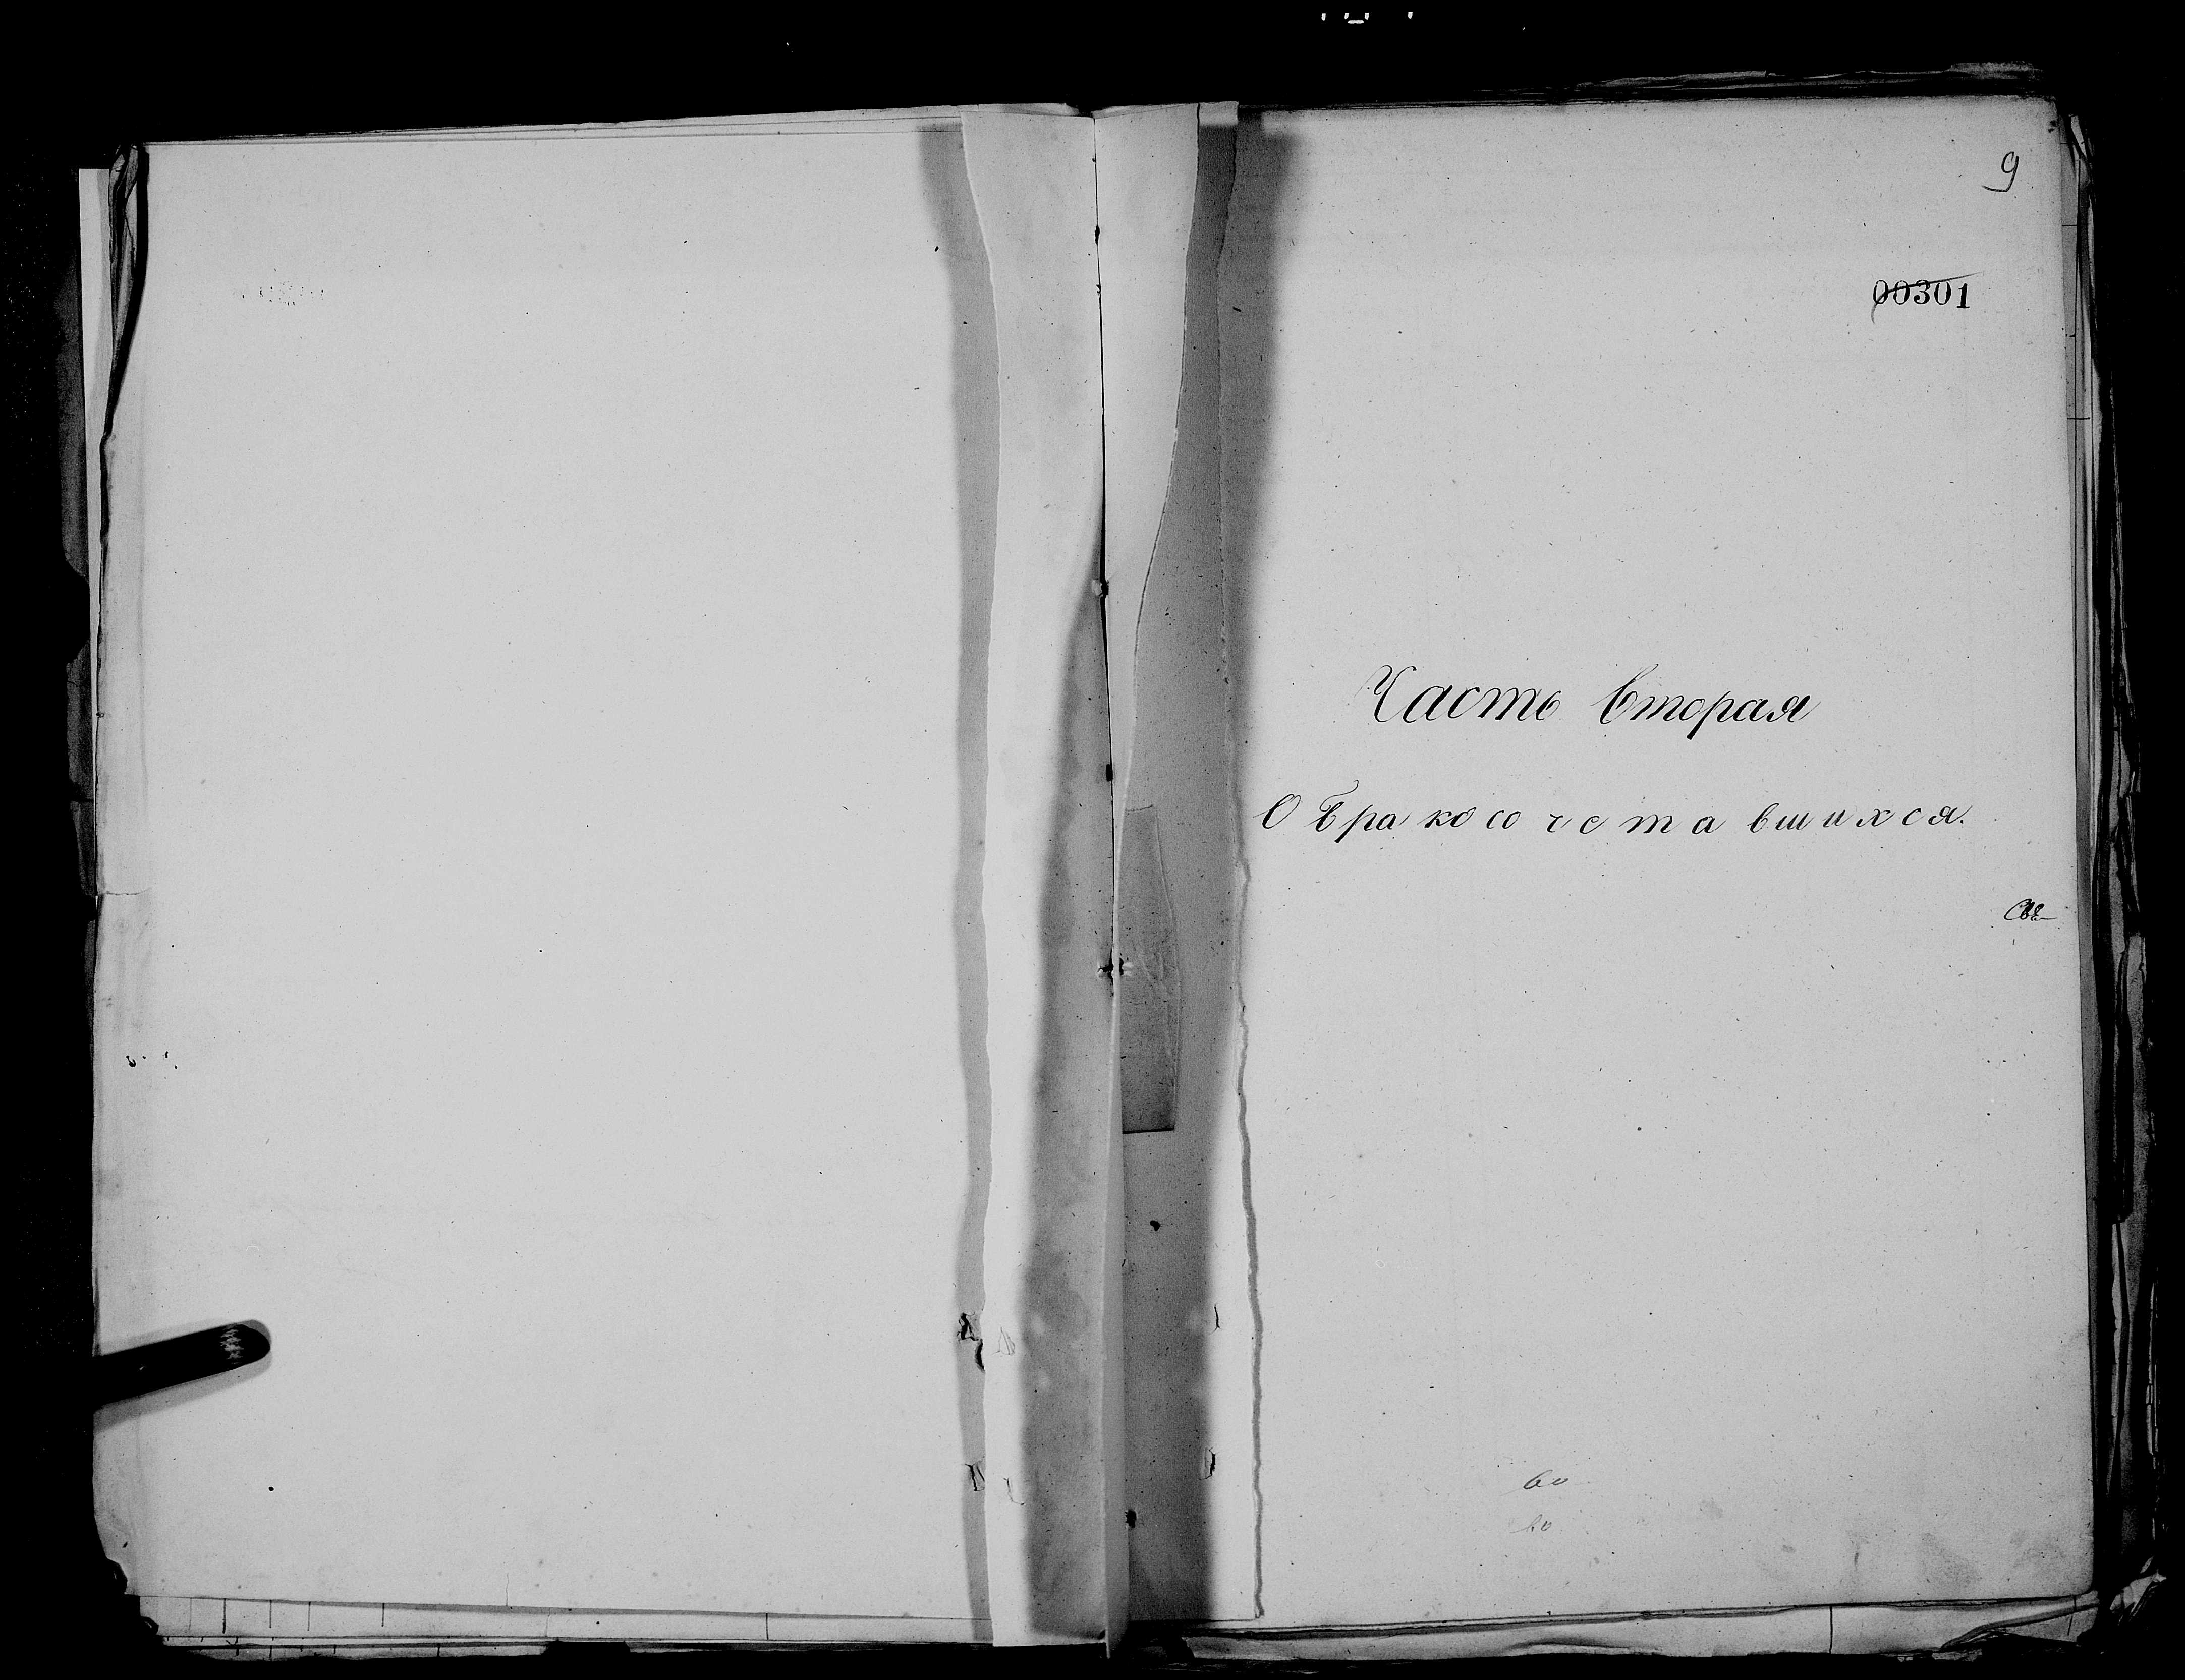 9
00301
Часть вторая
О Бракосочетавшихся.
60